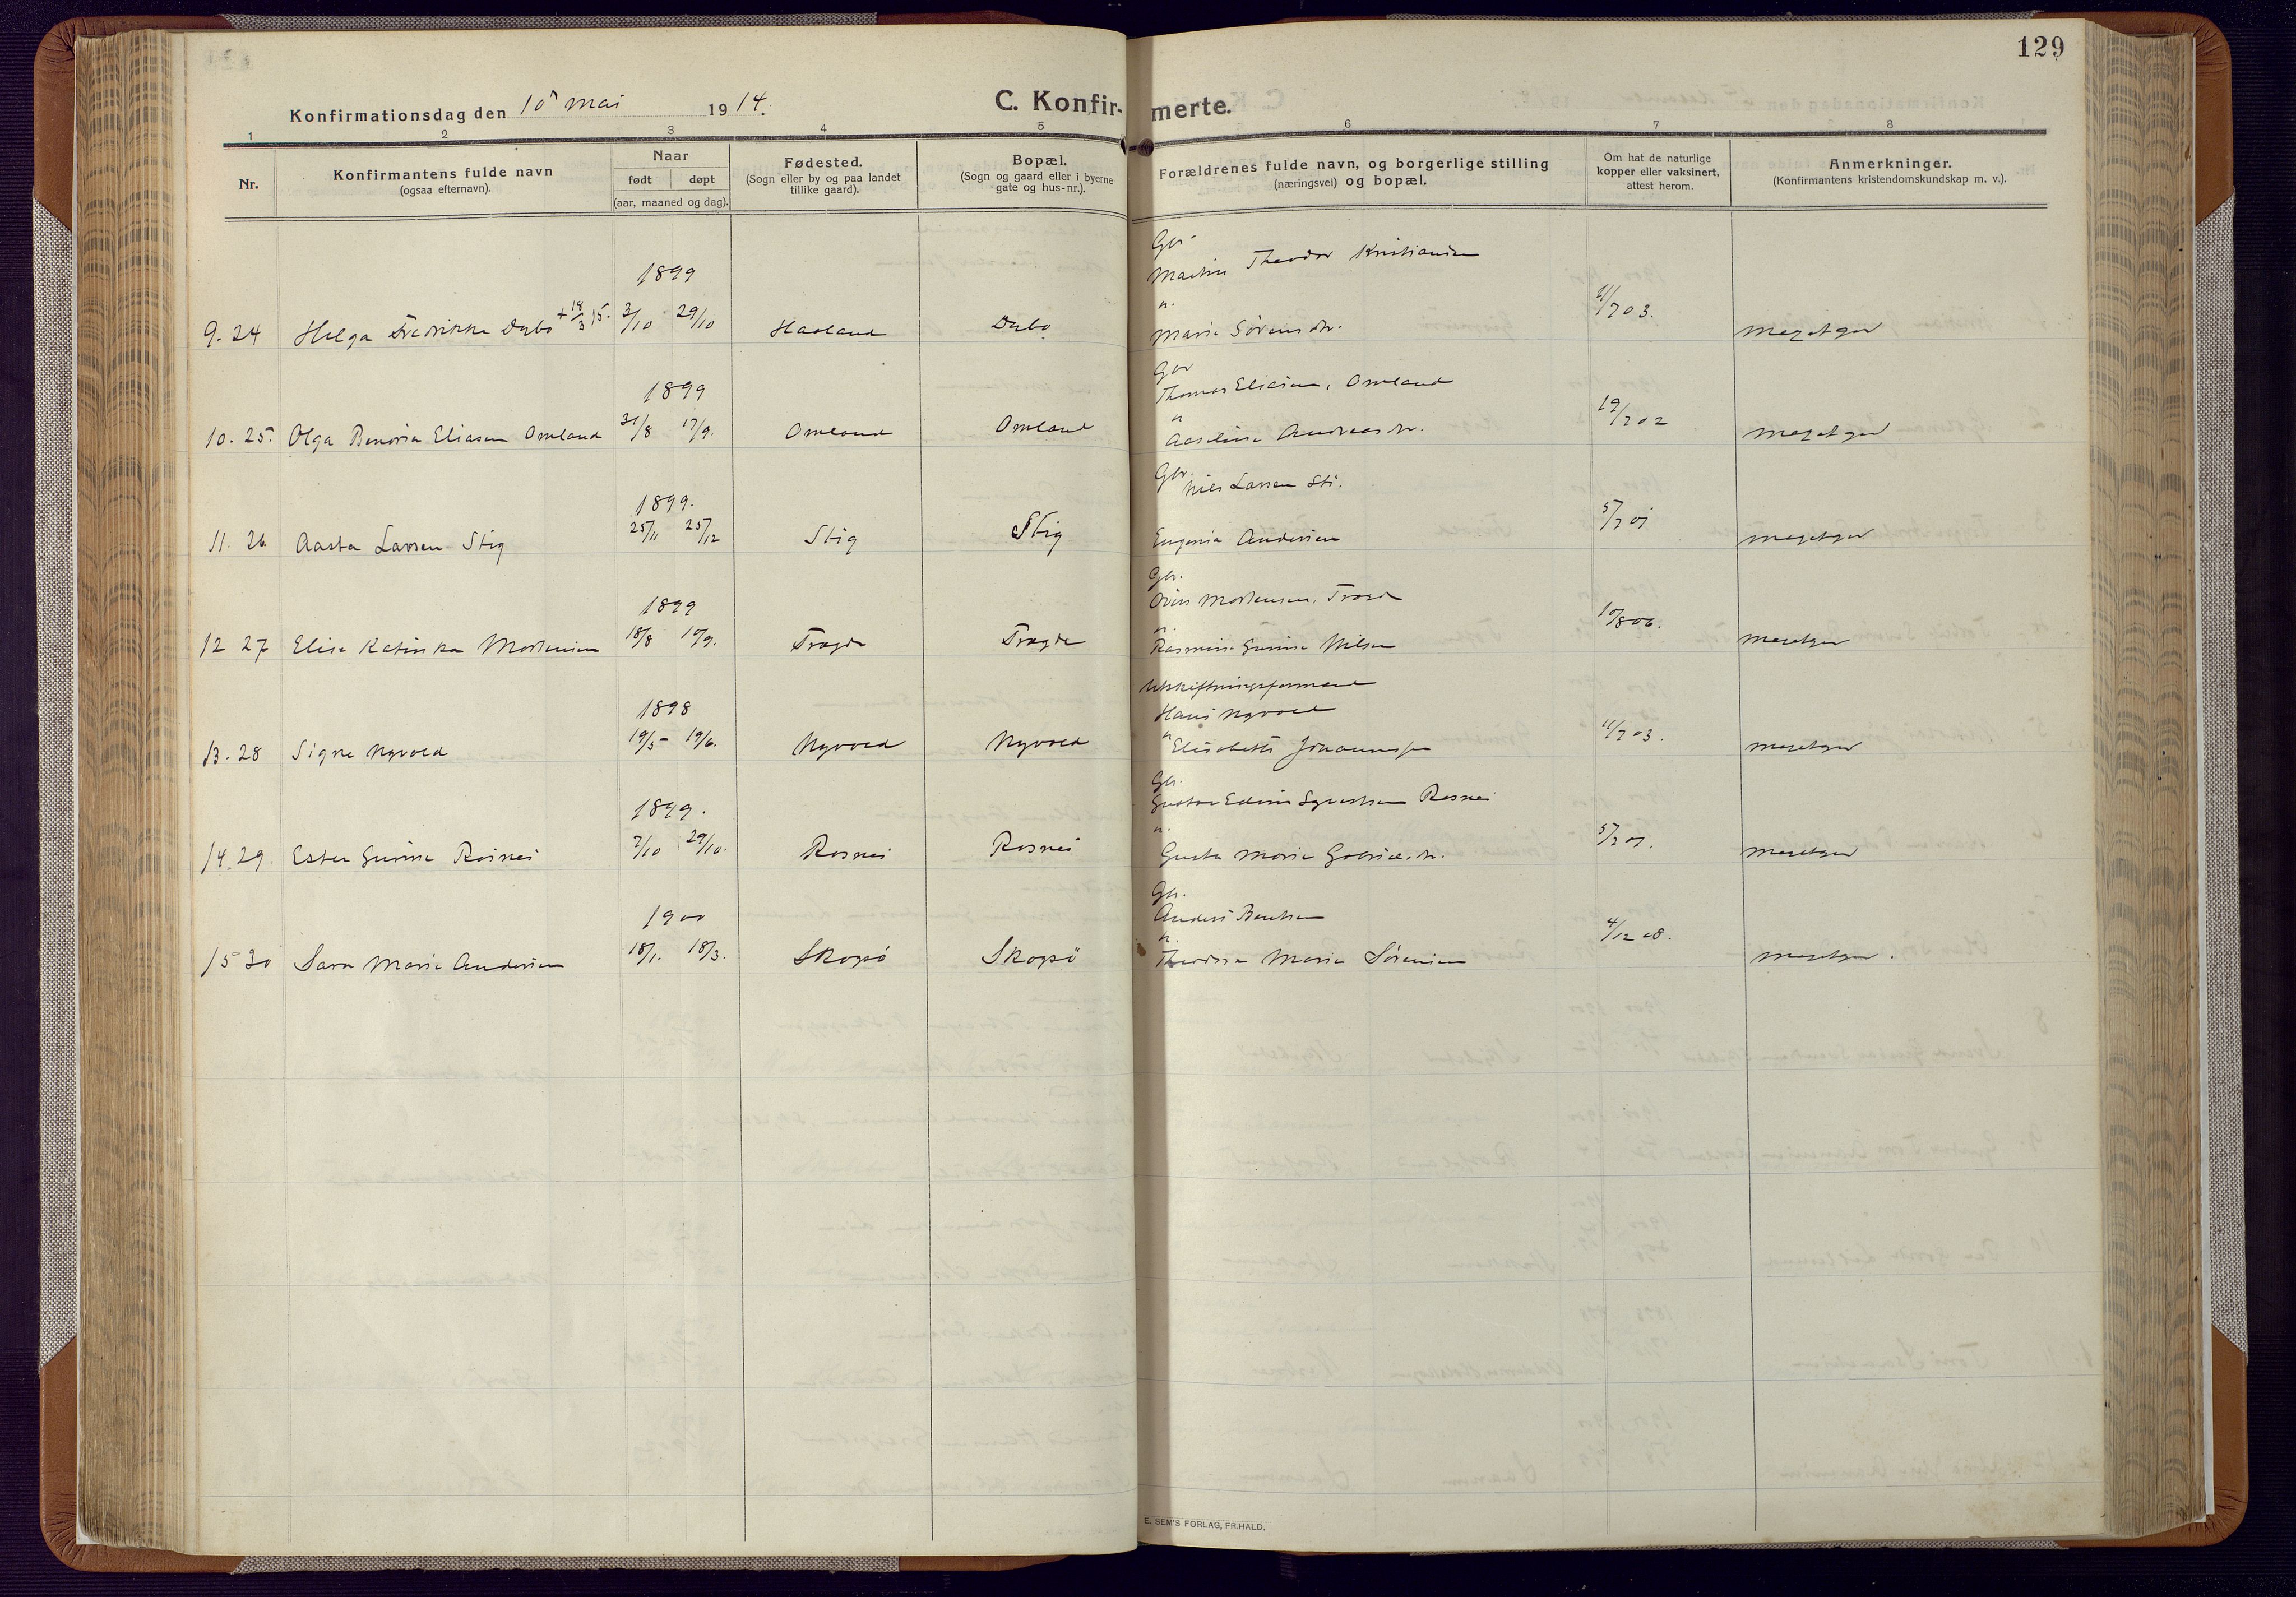 129
Konfirmationsdag den 10' mai 1914.
C. Konfir- merte.
1 2 3 4 5 6 7 8
Nr.
Konfirmantens fulde navn
(ogsaa efternavn).
Naar
født døpt
(aar, maaned og dag).
Fødested.
(Sogn eller by og paa landet
tillike gaard).
Bopæl.
(Sogn og gaard eller i byerne
gate og hus-nr.).
Forældrenes fulde navn, og borgerlige stilling
(næringsvei) og bopæl.
Om hat de naturlige
kopper eller vaksinert,
attest herom.
Anmerkninger.
(Konfirmantens kristendomskundskap m. v.).
Gbr
1899 Martin Theodor Kristiansen
9. 24 Helga Fredrikke Dybo + 18/3 15. 3/10 29/10 Haaland Dybo
Marie Sørensdtr. /7 03. megetgod
Gbr
1899 Thomas Eliasen, Omland
10. 25. Olga Eliasen Omland 31/8 17/9. Omland Omland
Andreasdtr. 19/7 02 megetgod
Gbr. Nils Larsen Sti.
1899.
11. 26 Aasta Larsen Stig 25/11 25/12 Stig Stig
Eugenia Andersen 5/7 01 megetgod
Gbr.
1899 Mortensen, Trægde
12 27 Elise Katinka Mortensen 18/8 10/9. Trægde Trægde
Rasmine Gurine Nilsen 10/8 06. megetgod
Utskiftningsformand
1898 Hans Nyvold
13. 28 Signe Nyvold 19/5 19/6. Nyvold Nyvold
Elisabeth Johannessen 11/7 03. megetgod
Gbr.
1899. Gustav Edvin Rosnes
14. 29. Ester Gurine Rosnes 7/10 29/10. Rosnes Rosnes
n.
Marie Gabrielsdtr. 5/7 01. megetgod
Gbr.
1900 Anders Bentsen
n.
15 30 Sara Marie Andersen 18/1. 18/3. Skogsø Skogsø
Marie Sørensen 4/12 08. megetgod.
E. SEM'S FORLAG, FR.HALD.